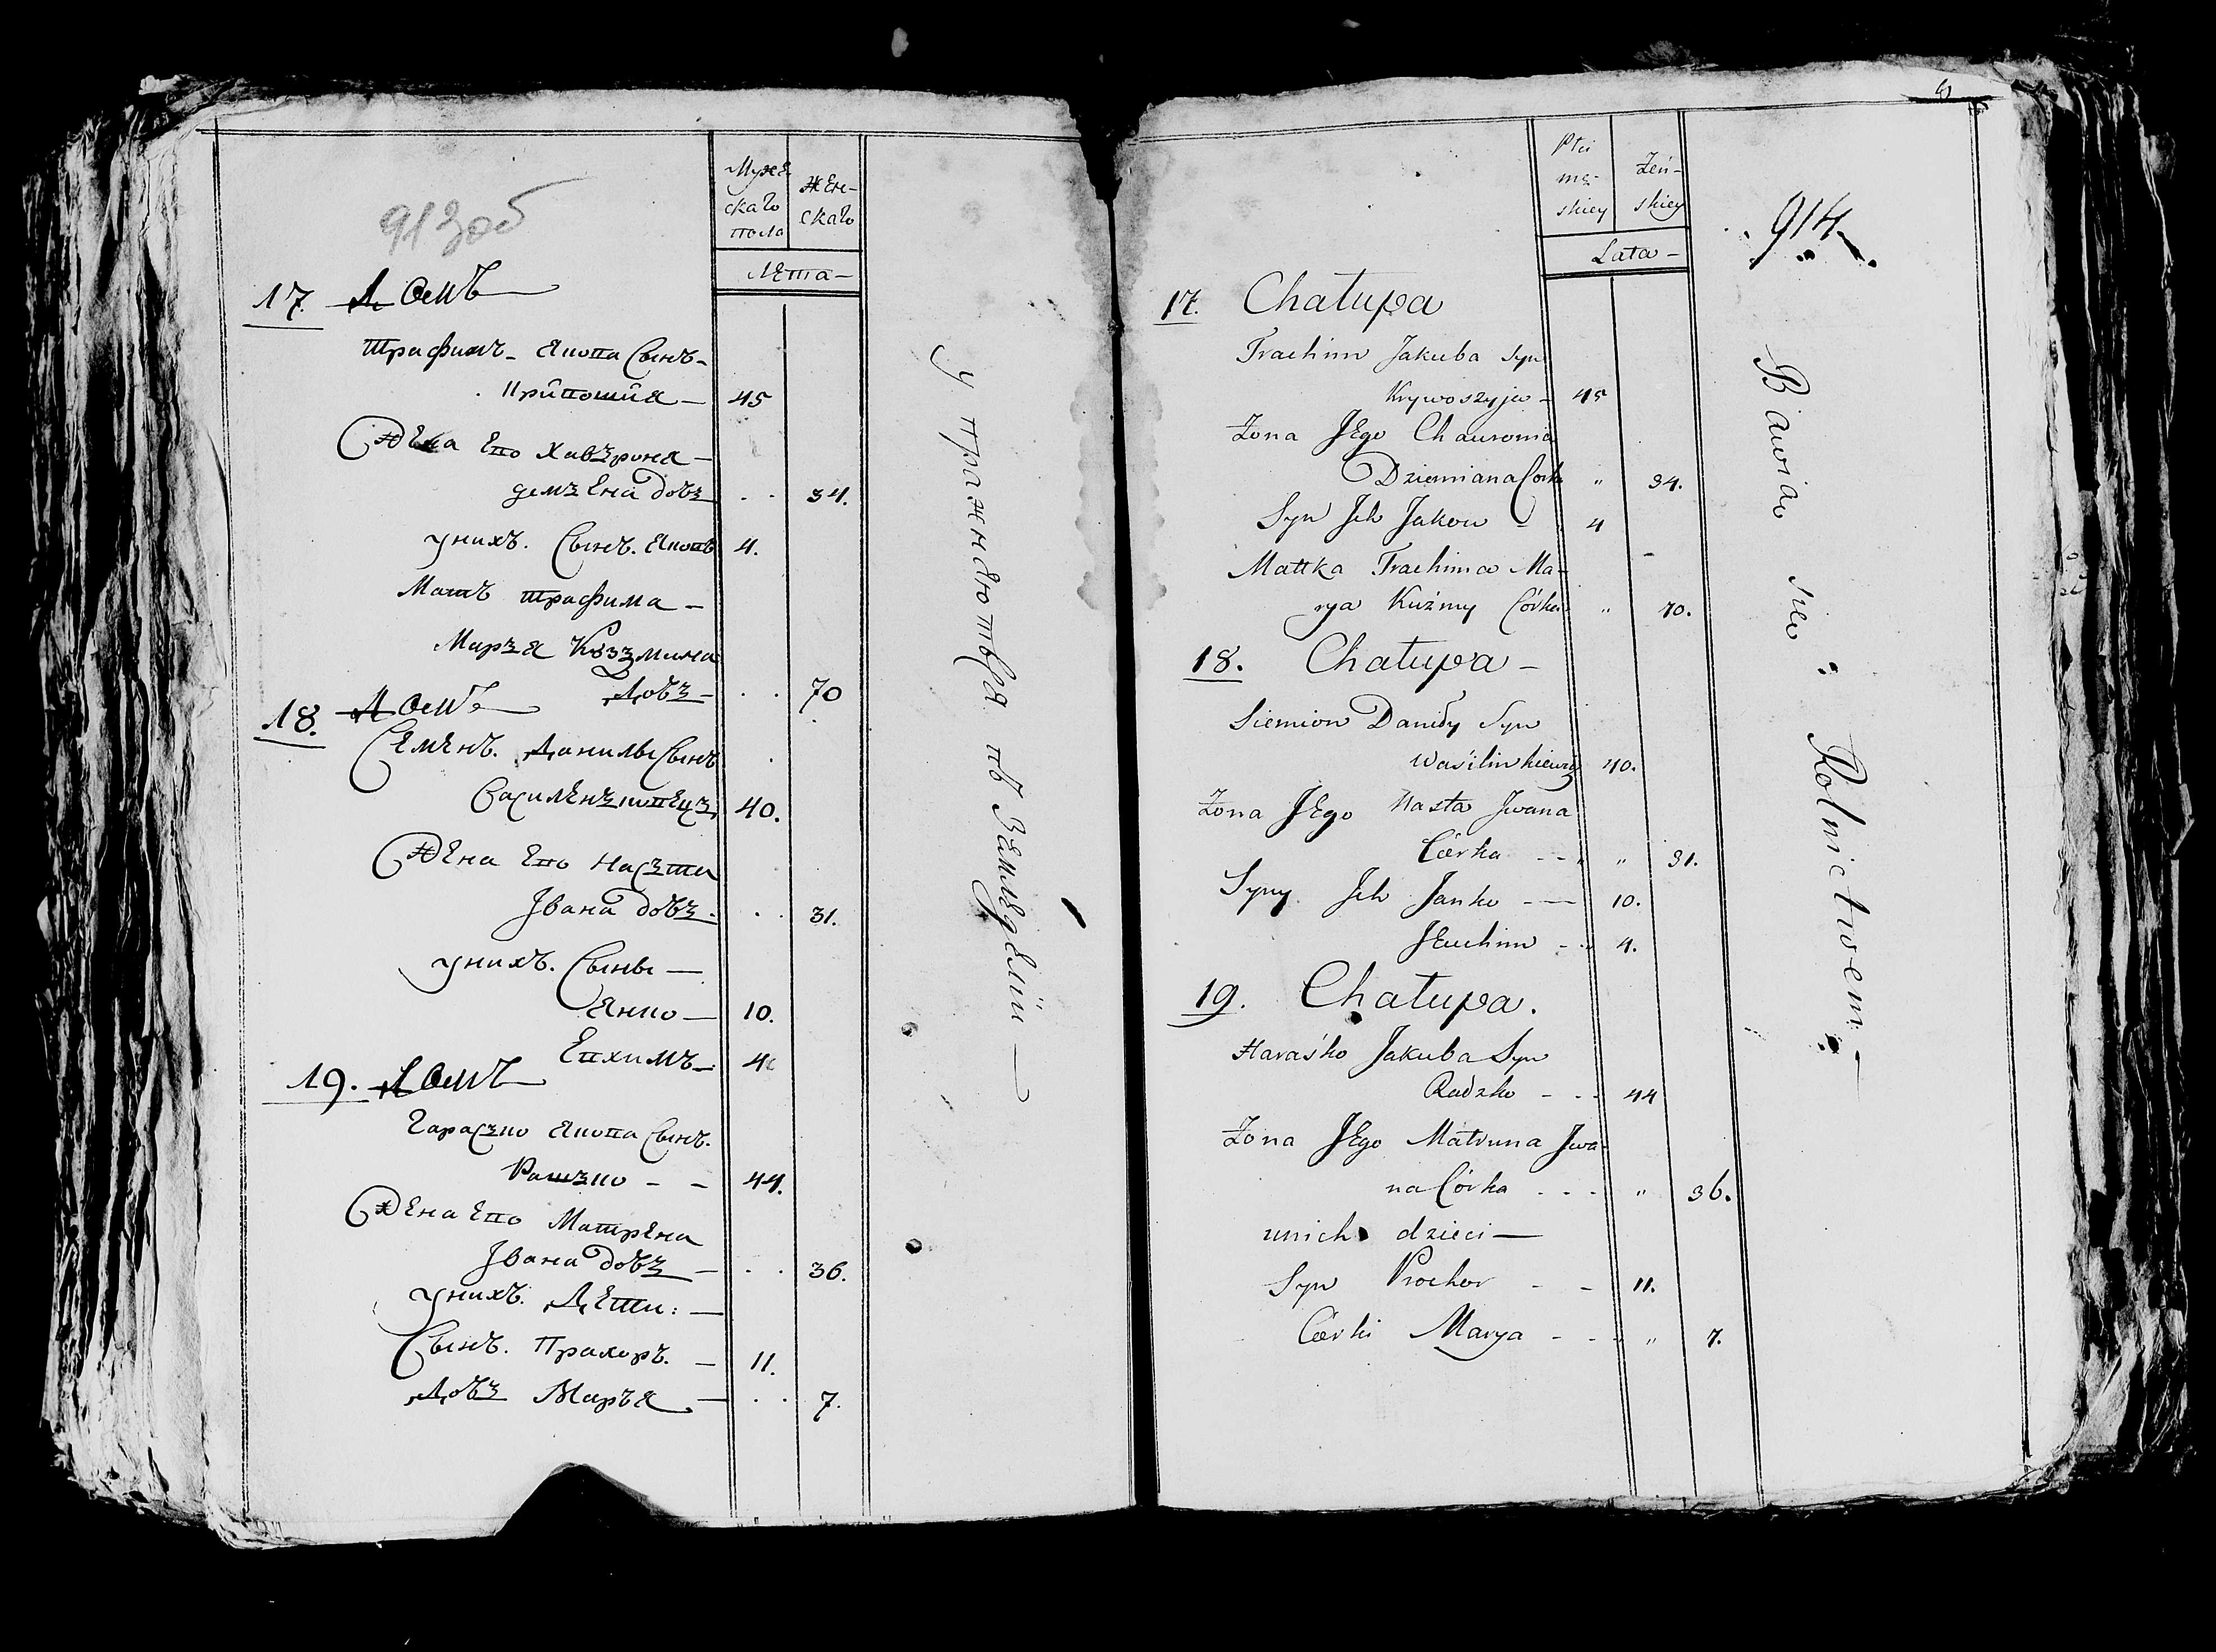 913об
Муже
скаго
пола
Жен-
скаго
Лета —
17. Домъ
Трафимъ - Якова Сынъ -
45
Жена Его Хавзроня —
Демзена довз . . 34.
унихъ. Сынъ. Яковъ 4.
Матъ Трафима —
Марзя Кузмина
Довз — . . 70
18. Домъ
Семенъ. Данилы Сынъ
40.
Жена Его Насзта
Jвана довз . . . 31.
унихъ. Сыны —
Янко — 10.
Евхимъ — 4
19. Домъ
Гарасзко Якова Сынъ.
44.
Жена Его Матрена
Jвана довз — . . 36.
унихъ. Дети: —
Сынъ. Прахоръ. — 11.
Довз Маръя — . . 7.
Płci
mę-
skiey
Żeń-
skiey
Lata —
914
17. Chałupa
Trachim Jakuba Syn
Krywoszyja — 45
Żona JEgo Chauronia
Dziemiana Córka " 34.
Syn Jch Jakow — 4
Matka Trachima Ma-
rya Kuźmy Córka " 70.
18. Chałupa —
Siemion Daniły Syn
40.
Żona JEgo Nasta Jwana
Córka - - " 31.
Syny Jch Janko - — 10.
JEuchim - - 4.
19. Chałupa.
Haraśko Jakuba Syn
Radzko - - - 44
Żona JEgo Matruna Jwa-
na Córka - - - " 36.
unich dzieci —
Syn Prochor - - 11.
Córki Marya - - - " 7.
Bawią się Rolnictwem